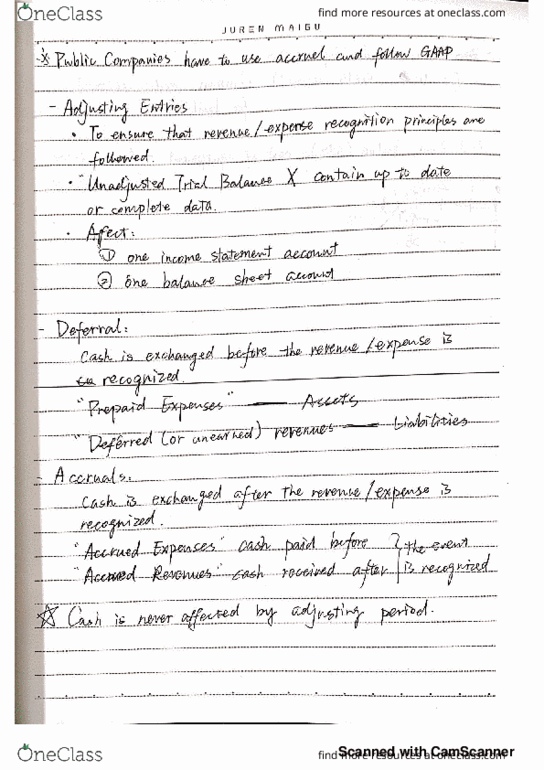 OneClass
find more resources at oneclass.com
JUREN MAIGU
※ Public Companies have to use accruel and follow GAAP
- Adjusting Entries
• To ensure that revenue/expense recognition principles are
followed.
• "Unadjusted Trial Balance X contain up to date
or complete data.
• Afect:
① one income statement account
② one balance sheet account
- Deferral:
Cash is exchanged before the revenue/expense is
recognized.
"Prepaid Expenses" — Assets
"Deferred (or unearned) revenues — Liabilities
- Accruals.
Cash is exchanged after the revenue/expense is
recognized.
"Accrued Expenses" cash paid before } the event
"Accrued Revenues" cash received after } is recognized
☆ Cash is never affected by adjusting period.
OneClass
find more resources at oneclass.com
Scanned with CamScanner